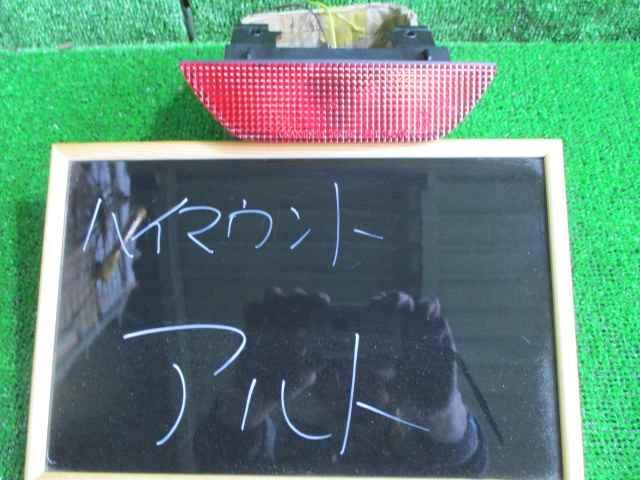 ハイマウント
アルト